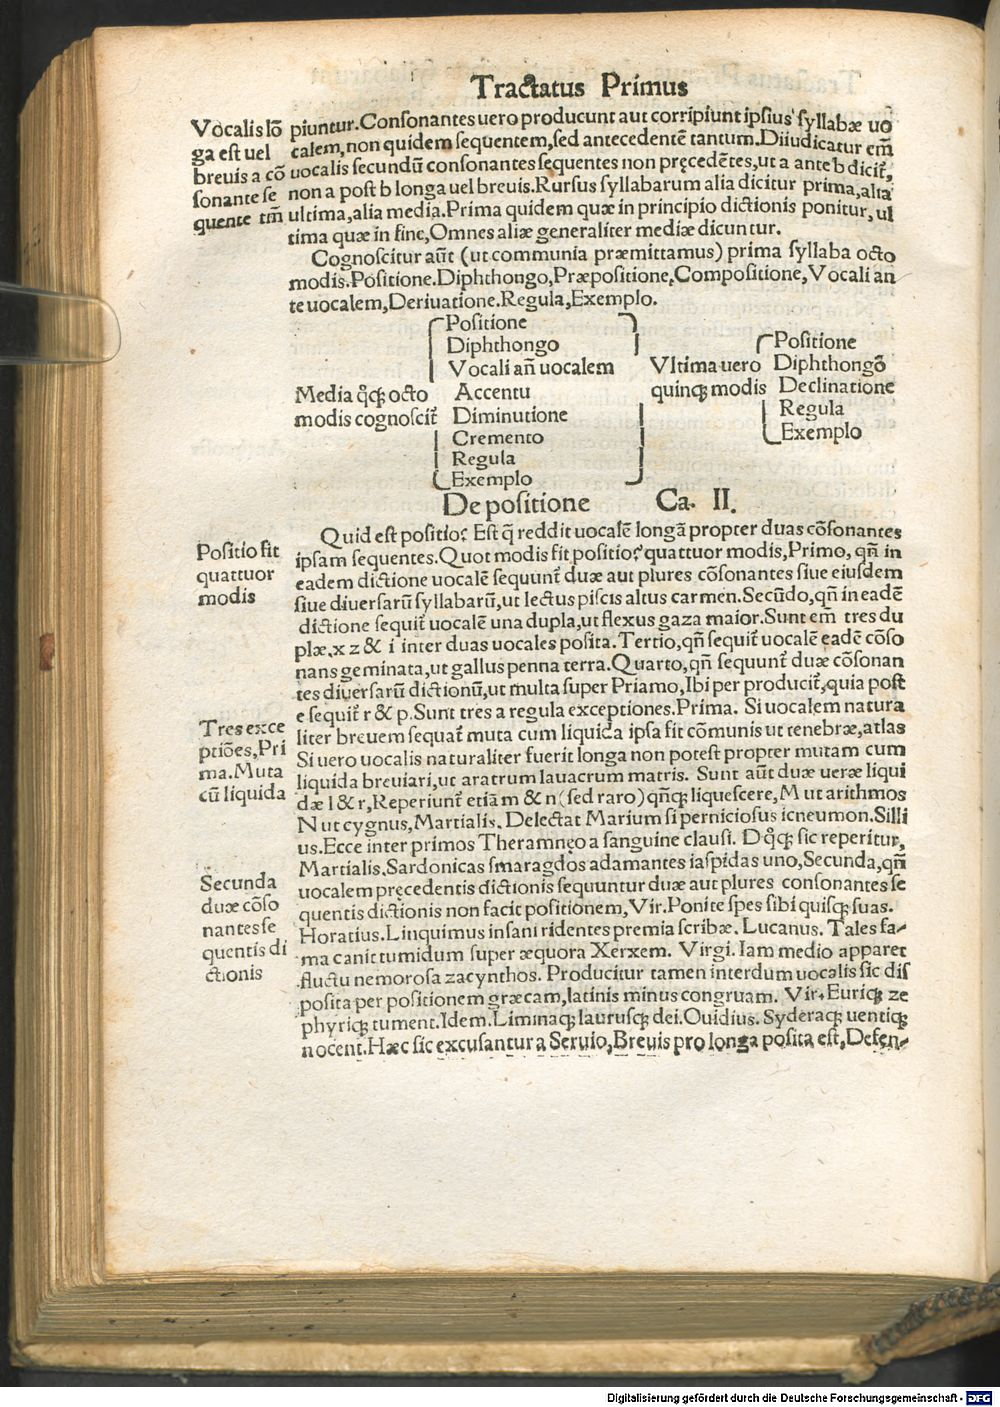 Tractatus Primus
Vocalis lō
ga est uel
breuis a cō
ſonante ſe
quente tm̄
piuntur.Conſonantes uero producunt aut corripiunt ipſius ſyllabæ uo
calem,non quidem ſequentem,ſed antecedentē tantum.Diiudicatur em̄
uocalis ſecundū conſonantes ſequentes non pręcedētes,ut a ante b dicit᷑,
non a poſt b longa uel breuis.Rurſus ſyllabarum alia dicitur prima,alia
ultima,alia media.Prima quidem quæ in principio dictionis ponitur,ul
tima quæ in fine,Omnes aliæ generaliter mediæ dicuntur.
Cognoſcitur aūt (ut communia præmittamus) prima ſyllaba octo
modis.Poſitione.Diphthongo,Præpoſitione,Compoſitione,Vocali an
te uocalem,Deriuatione.Regula,Exemplo.
Media q̊qꝫ octo
modis cognoſcit᷑
Poſitione
Diphthongo
Vocali an̄ uocalem
Accentu
Diminutione
Cremento
Regula
Exemplo
Vltima uero
quinqꝫ modis
Poſitione
Diphthongō
Declinatione
Regula
Exemplo
De poſitione Ca. II.
Poſitio fit
quattuor
modis
Quid eſt poſitio? Eſt q̄ reddit uocalē longā propter duas cōſonantes
ipſam ſequentes.Quot modis fit poſitio? quattuor modis,Primo, qn̄ in
eadem dictione uocalē ſequunt᷑ duæ aut plures cōſonantes ſiue eiuſdem
ſiue diuerſarū ſyllabarū,ut lectus piſcis altus carmen.Secūdo,qn̄ in eadē
dictione ſequit᷑ uocalē una dupla,ut flexus gaza maior.Sunt em̄ tres du
plæ.x z & i inter duas uocales poſita.Tertio,qn̄ ſequit᷑ uocalē eadē cōſo
nans geminata,ut gallus penna terra.Quarto,qn̄ ſequunt᷑ duæ cōſonan
tes diuerſarū dictionū,ut multa ſuper Priamo,Ibi per producit᷑,quia poſt
e ſequit᷑ r & p.Sunt tres a regula exceptiones.Prima. Si uocalem natura
Tres exce
ptiōes,Pri
ma.Muta
cū liquida
liter breuem ſequat᷑ muta cum liquida ipſa fit cōmunis ut tenebræ,atlas
Si uero uocalis naturaliter fuerit longa non poteſt propter mutam cum
liquida breuiari,ut aratrum lauacrum matris. Sunt aūt duæ ueræ liqui
dæ l & r,Reperiunt᷑ etiā m & n (ſed raro) qn̄qꝫ liqueſcere,M ut arithmos
N ut cygnus,Martialis. Delectat Marium ſi perniciosus icneumon.Silli
us.Ecce inter primos Theramnęo a ſanguine clauſi. D q̊qꝫ ſic reperitur,
Martialis.Sardonicas ſmaragdos adamantes iaſpidas uno,Secunda,qn̄
Secunda
duæ cōſo
nantes ſe
quentis di
ctionis
uocalem pręcedentis dictionis ſequuntur duæ aut plures conſonantes ſe
quentis dictionis non facit poſitionem,Vir.Ponite ſpes ſibi quiſqꝫ ſuas.
Horatius.Linquimus inſani ridentes premia ſcribæ. Lucanus. Tales fa-
ma canit tumidum ſuper æquora Xerxem. Virgi. Iam medio apparet
fluctu nemoroſa zacynthos. Producitur tamen interdum uocalis ſic diſ
poſita per poſitionem græcam,latinis minus congruam. Vir. Euriqꝫ ze
phyriqꝫ tument.Idem.Liminaqꝫ lauruſqꝫ dei.Ouidius. Syderaqꝫ uentiqꝫ
nocent.Hæc ſic excuſantur a Seruio,Breuis pro longa poſita eſt,Defen-
Digitalisierung gefördert durch die Deutsche Forschungsgemeinschaft - DFG